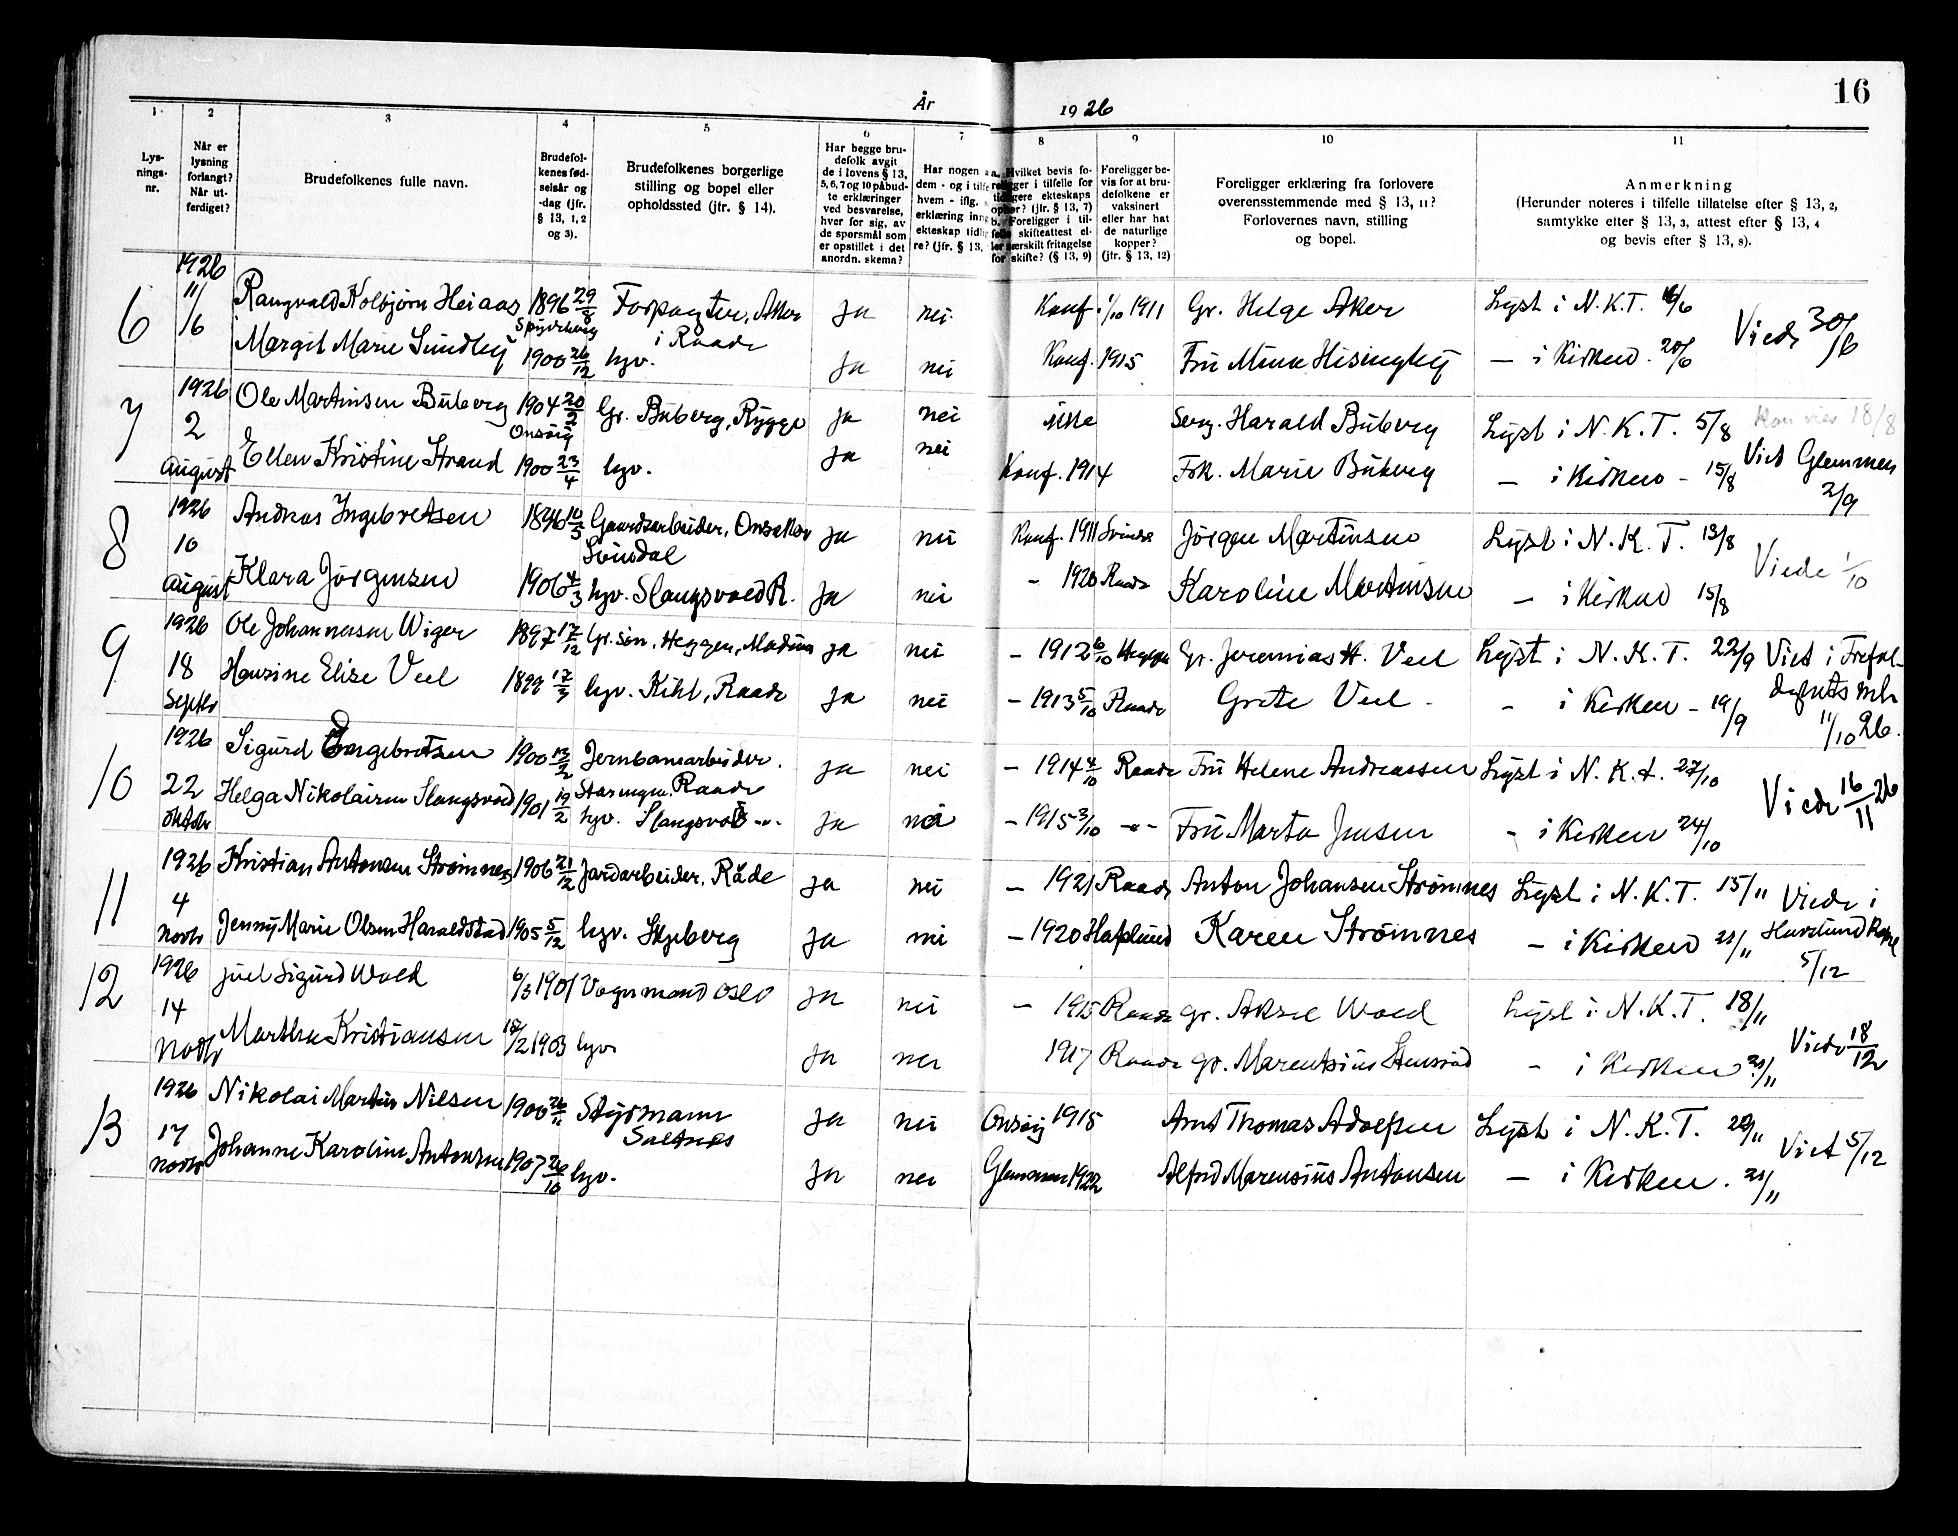 År 1926
16
1
2
3
4
5
6
7
8
9
10
11
Lys-
nings-
nr.
Når er
lysning
forlangt?
Når ut-
ferdiget?
Brudefolkenes fulle navn.
Brudefol-
kenes fød-
selsår og
-dag (jfr.
§ 13, 1, 2
og 3).
Brudefolkenes borgerlige
stilling og bopel eller
opholdssted (jfr. § 14).
Har begge bru-
defolk avgit
de i lovens § 13,
5, 6, 7 og 10 påbud-
te erklæringer
ved besvarelse,
hver for sig, av
de spørsmål som
er opstillet i det
anordn. skema?
Har nogen a
dem - og i tilfe
hvem - iflg. s
erklæring inng
ekteskap tidlig
re? (jfr. § 13,
a. Hvilket bevis fo-
religger i tilfelle for
tidligere ekteskaps
ophør? (jfr. § 13, 7)
b. Foreligger i til-
felle skifteattest el-
ler særskilt fritagelse
for skifte? (§ 13, 9)
Foreligger be-
vis for at bru-
defolkene er
vaksinert
eller har hat
de naturlige
kopper?
(jfr. § 13, 12)
Foreligger erklæring fra forlovere
overensstemmende med § 13, 11?
Forlovernes navn, stilling
og bopel.
Anmerkning
(Herunder noteres i tilfelle tillatelse efter § 13, 2,
samtykke efter § 13, 3, attest efter § 13, 4
og bevis efter § 13, 8).
6
1926
11/6
Rangvald Kolbjørn Heiaas 1896 29/8 Forpagter, Aker ja nei Konf. 1/10 1911 Gr. Helge Aker Lyst i N.K.T. 16/6
Spydeberg i Raade
Margit Marie Sundby 1900 26/12 hgv. ja nei Konf. 1915 Fru Mina Hisingby — i Kirken 20/6
Viede 30/6
7
1926
2
August
Ole Martinsen Buberg 1904 20/2 Gr. Buberg, Rygge ja nei ikke Serg. Harald Buberg Lyst i N.K.T. 5/8
Onsøy
Ellen Kristine Strand 1900 23/4 hgv. ja nei Konf. 1914 Frk. Marie Buberg — i Kirken - 15/8
18/8
Viet Glemmen
2/9
8
1926
10
August
Andreas Ingebretsen 1896 10/5 Gaardsarbeider, Onsaker ja nei Konf. 1911 Svindal Jørgen Martinsen Lyst i N.K.T. 13/8
Svindal
Klara Jørgensen 1906 4/3 hgv. Slangsvold R. ja nei - 1920 Raade Karoline Martinsen — i Kirken 15/8
Viede 1/10
9
1926
18
Septbr
Ole Johannesen Wiger 1897 17/12 Gr.søn, Heggen, Modum ja nei - 1912 6/10 Heggen Gr. Jeremias H. Veel Lyst i N.K.T. 22/9
Hansine Elise Veel 1899 17/3 hgv. Kihl, Raade ja nei - 1913 5/10 Raade Grete Veel - i Kirken - 19/9
Viet i Trefol-
dighets mh
11/10 26.
10
1926
22
Oktobr
Sigurd Ingebretsen 1900 13/2 Jernbanearbeider. ja nei - 1914 4/10 Raade Fru Helene Andreassen Lyst i N.K.t. 27/10
Raade
Helga Nikolaisen Slangsvold 1901 19/2 hgv. Slangsvold -"- ja nei - 1915 3/10 -"- Fru Marta Jensen - i Kirken 24/10
Viede 16/11 26
11
1926
4
Novbr
Kristian Antonsen Strømnes 1906 21/12 Jordarbeider, Råde ja nei - 1921 Raade Anton Johansen Strømnes Lyst i N.K.T. 15/11
Jenny Marie Olsen Haraldstad 1905 5/12 hgv. Skjeberg ja nei - 1920 Hafslund Karen Strømnes - i Kirken 21/11
Viede i
Hafslund Kapel
5/12
12
1926
14
Novbr
Juel Sigurd Wold 6/3 1901 Vognmand Oslo ja nei - 1915 Raade gr. Aksel Wold Lyst i N.K.T. 18/11
Martha Kristiansen 18/2 1903 hgv ja nei 1917 Raade gr. Marentsius Stensrød - i Kirken 21/11
Viede 18/12
13
1926
17
Novbr
Nikolai Martin Nilsen 1900 26/11 Styrmann ja nei Onsøy 1915 Arnt Thomas Adolfsen Lyst i N.K.T. 22/11
Saltnes
Johanne Karoline Antonsen 1907 26/10 hgv. ja nei Glemmen 1922 Alfred Marensius Antonsen — i Kirken. 21/11
Viet 5/12